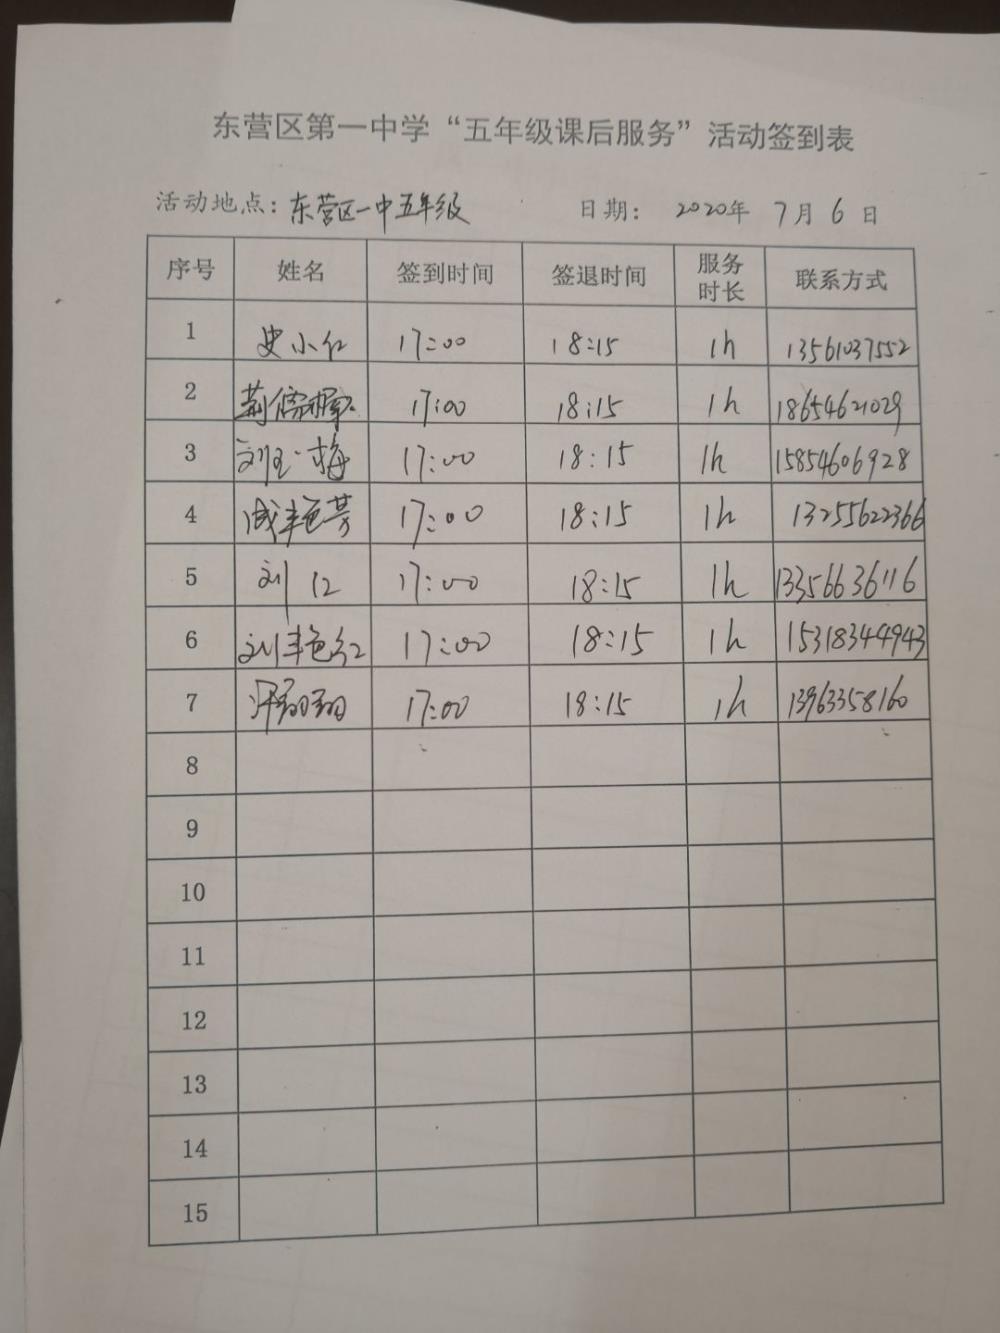 东营区第一中学“五年级课后服务”活动签到表
活动地点：东营区一中五年级 日期： 2020年 7月 6日
序号 姓名 签到时间 签退时间 服务时长 联系方式
1 史小红 17:00 18:15 1h 13561037552
2 17:00 18:15 1h 18654621029
3 刘玉梅 17:00 18:15 1h 15854606928
4 成艳芳 17:00 18:15 1h 13255622366
5 刘 17:00 18:15 1h 13356636116
6 刘艳红 17:00 18:15 1h 15318344943
7 17:00 18:15 1h 13963358160
8
9
10
11
12
13
14
15